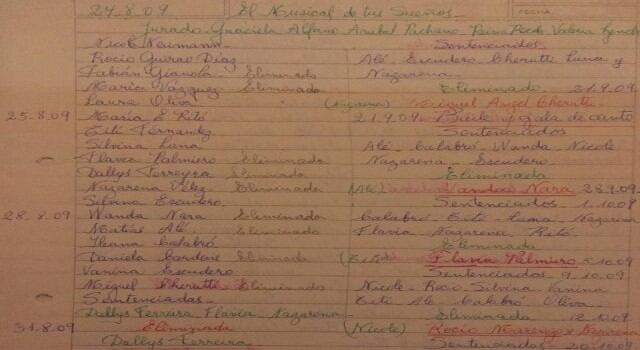 24.8.09 El Musical de tus Sueños
FECHA
Jurado Graciela Alfano Anibal Pachano Reina Reech Valeria Lynch
Nicole Neumann
Rocio Guirao Díaz
Fabián Gianola Eliminado
María Vázquez Eliminada
Laura Oliva
25.8.09 María E Ritó
Tití Fernandez
Silvina Luna
Flavia Palmiero Eliminada
Dallys Ferreyra Eliminada
Nazarena Vélez Eliminada
Silvina Escudero
28.8.09 Wanda Nara Eliminada
Matías Alé Eliminado
Iliana Calabró
Daniela Cardone Eliminada
Vanina Escudero
Miguel Cherutti Eliminado
Sentenciadas
Dallys Ferreira Flavia Nazarena
31.8.09 Eliminada
Dallys Ferreira
Sentenciados
Alé Escudero Cherutti Luna y
Nazarena
Eliminado 21.9.09
(Nazarena) Miguel Angel Cherutti
21.9.09 Baile y gala de canto
Sentenciados
Alé Calabró Wanda Nicole
Nazarena Escudero
Eliminada
(Alé) Wanda Nara 28.9.09
Sentenciados 1.10.09
Calabró Tití Luna Nazarena
Flavia Nazarena Ritó
Eliminada
Flavia Palmiero 5.10.09
Sentenciados 9.10.09
Nicole Rocio Silvina Vanina
Tití Alé Calabró Oliva
Eliminada 12.10.09
(Nicole) Rocio Nazarena
Sentenciados 20.10.09